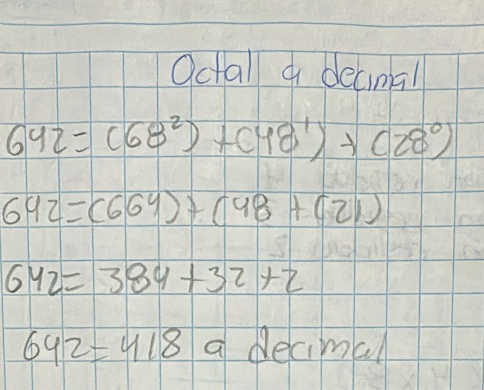 Octal a decimal
642=(68²)+(48¹)+(28⁰)
642=(664)+(48+(21)
642=384+32+2
642=418 a decimal